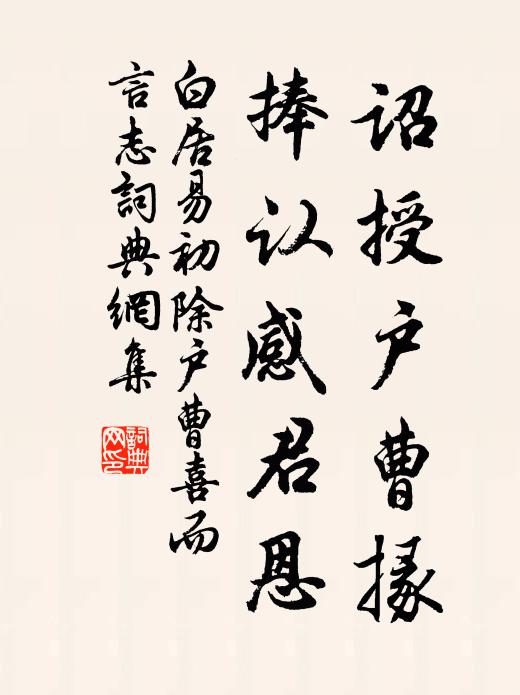 诏授户曹掾
捧认感君恩
白居易初除户曹喜而
言志詞典網集
詞典
网印